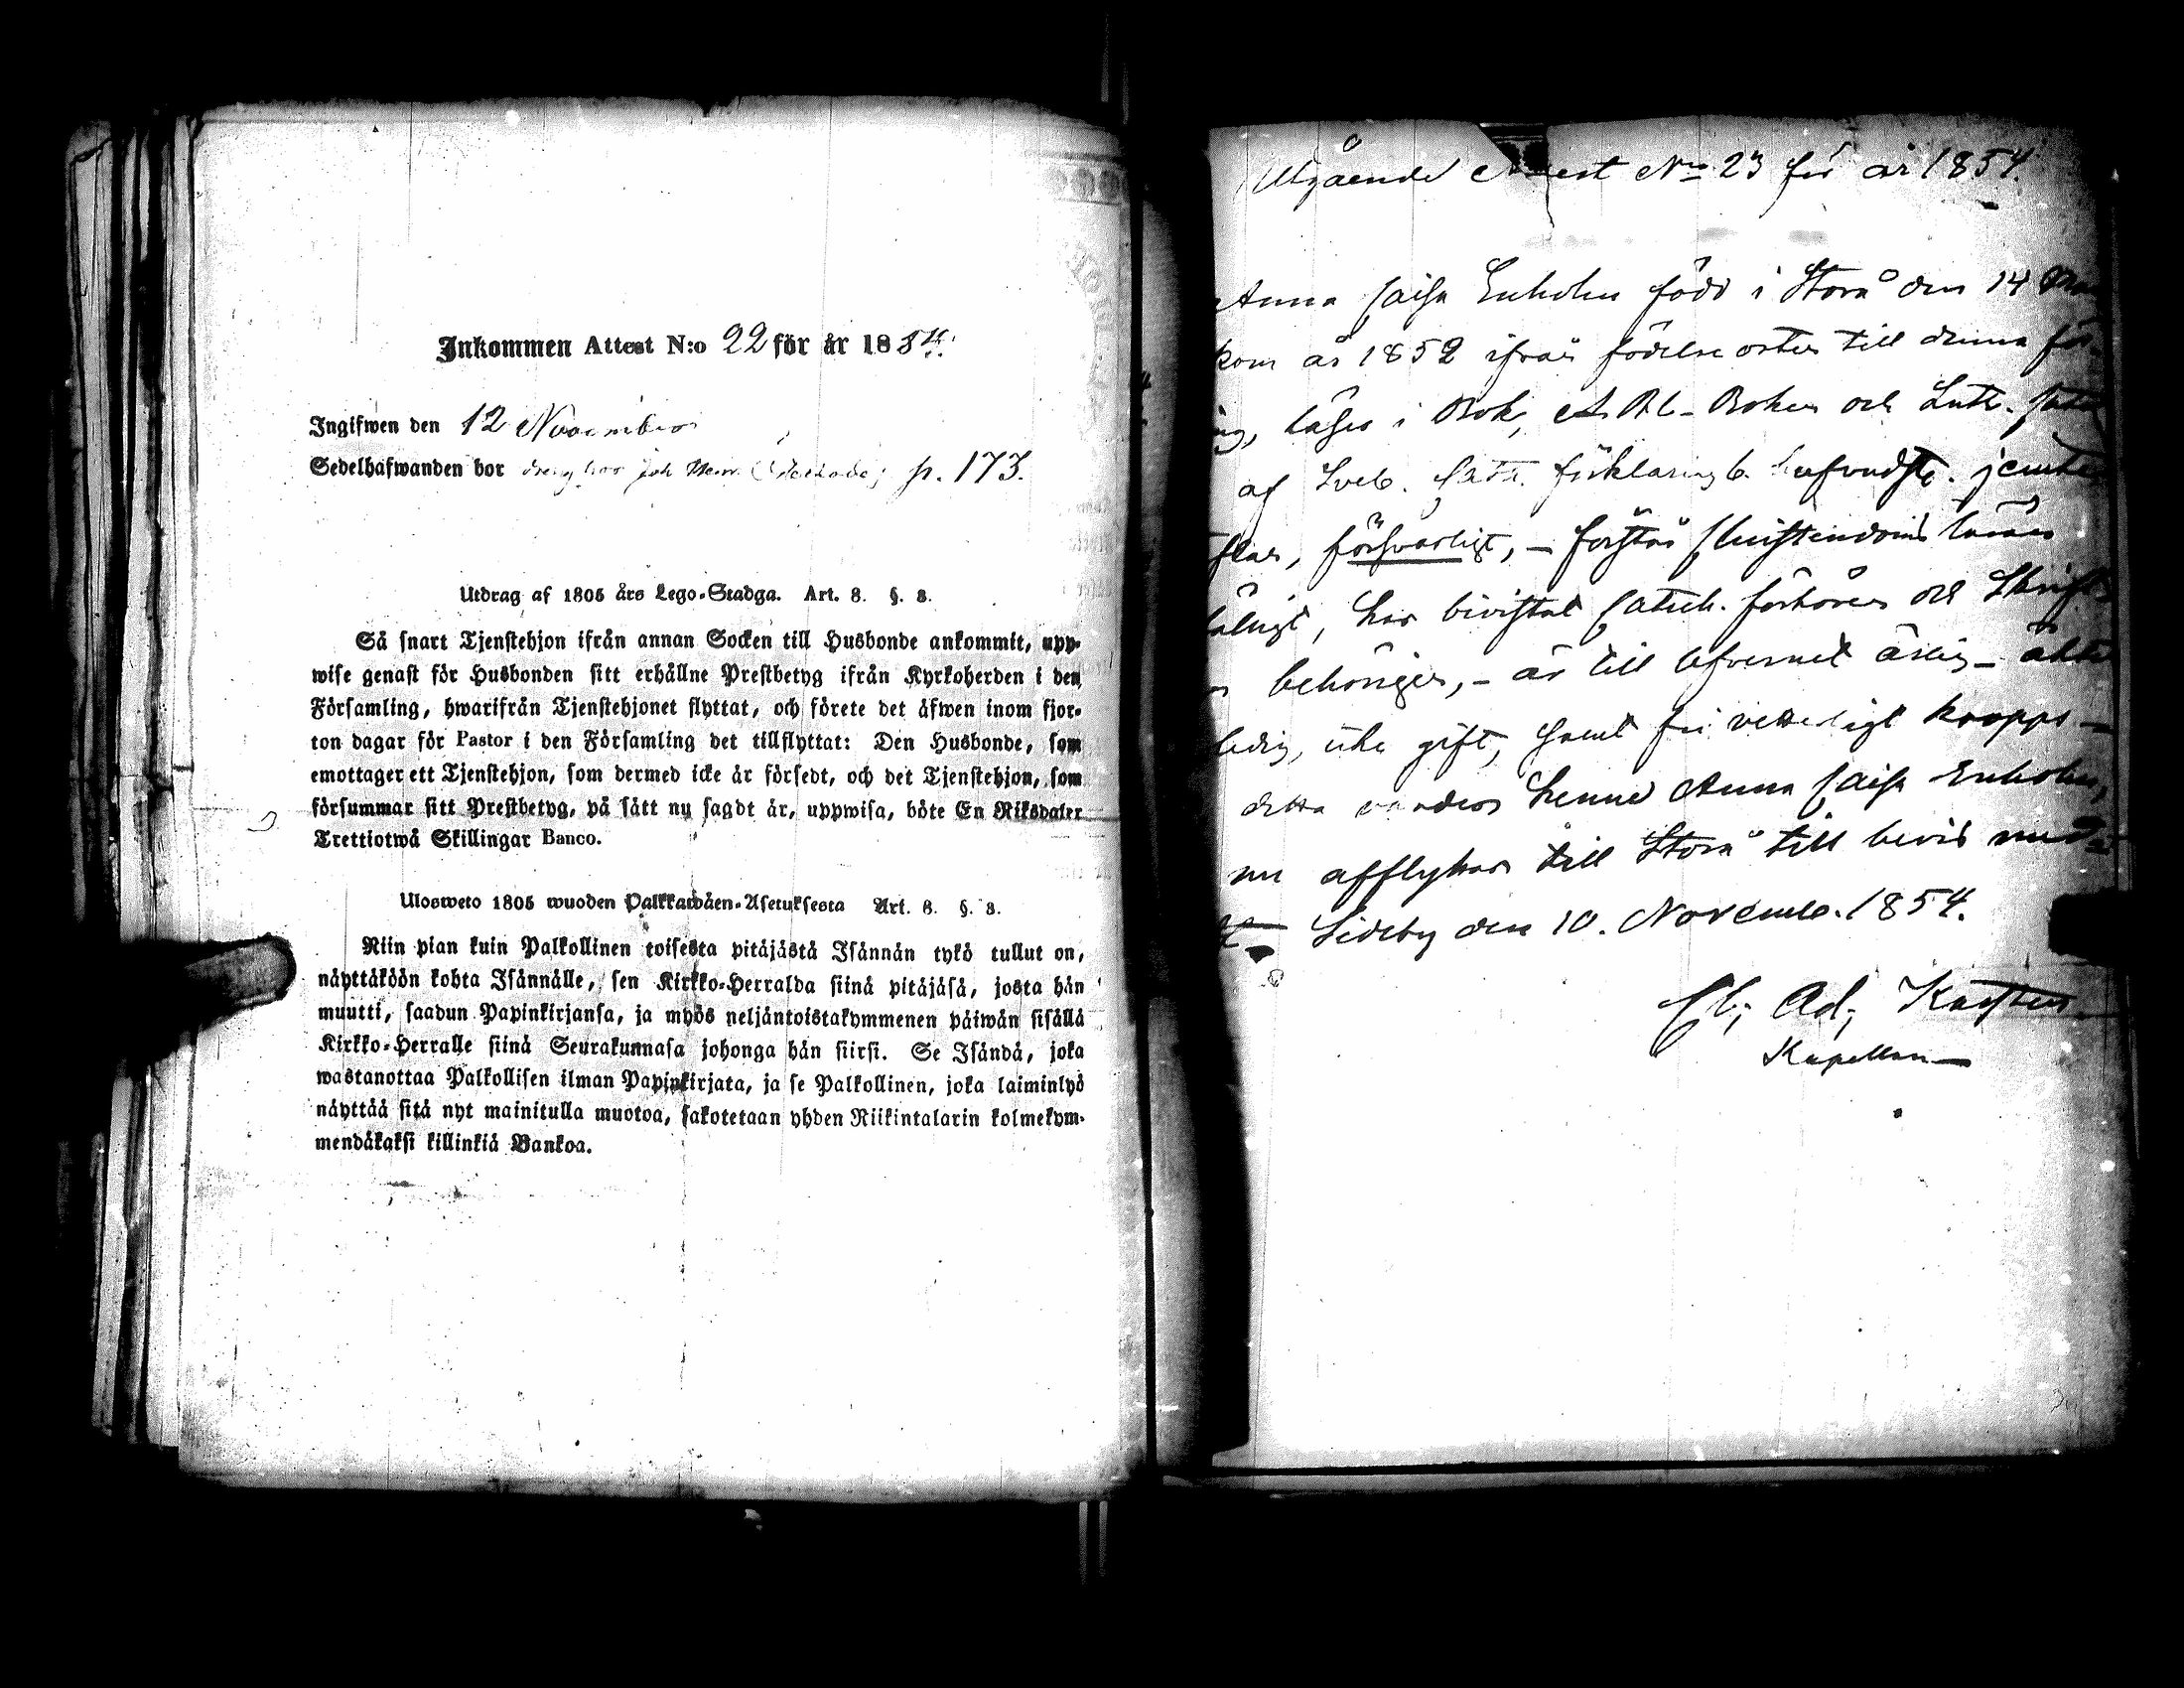 Inkommen Attest N:o 22 för år 1854.
Ingifwen den 12 November
Sedelhafwanden bor dreng hos Joh p. 173.
Utdrag af 1805 års Lego-Stadga. Art. 8. §. 8.
Så snart Tjenstehjon ifrån annan Socken till Husbonde ankommit, upp-
wise genast för Husbonden sitt erhållne Prestbetyg ifrån Kyrkoherden i den
Församling, hwarifrån Tjenstehjonet flyttat, och förete det äfwen inom fjor-
ton dagar för Pastor i den Församling det tillflyttat: Den Husbonde, som
emottager ett Tjenstehjon, som dermed icke är försedt, och det Tjenstehjon, som
försummar sitt Prestbetyg, på sätt nu sagdt är, uppwisa, böte En Riksdaler
Trettiotwå Skillingar Banco.
Ulosweto 1805 wuoden Palkkawäen-Asetuksesta Art. 8. §. 8.
Niin pian kuin Palkollinen toisesta pitäjästä Isännän tykö tullut on,
näyttäköön kohta Isännälle, sen Kirkko-Herralda siinä pitäjäsä, josta hän
muutti, saadun Papinkirjansa, ja myös neljäntoistakymmenen päiwän sisällä
Kirkko-Herralle siinä Seurakunnasa johonga hän siirsi. Se Isändä, joka
wastanottaa Palkollisen ilman Papinkirjata, ja se Palkollinen, joka laiminlyö
näyttää sitä nyt mainitulla muotoa, sakotetaan yhden Riikintalarin kolmekym-
mendäkaksi killinkiä Bankoa.
Utgående Attest No 23 för år 1854.
Anna Caisa Enholm född i Storå den 14
kom år 1852 ifrån födelse orten till denna för
läser i Bok, A.B.C.-Boken och Luth. Catec
af Sveb. Cate. förklaring 6. hufvudst. jemte
försvarligt, – förstår Christendoms läran
har bivistat Catech. förhören och Skrift
behörigen, – är till lefvernet ärlig –
ledig, icke gift, samt
detta meddelas henne Anna Caisa Enholm,
nu afflyttar till Storå till bevis
Sideby den 10. Novemb. 1854.
Ad; Karsten
Kapellan